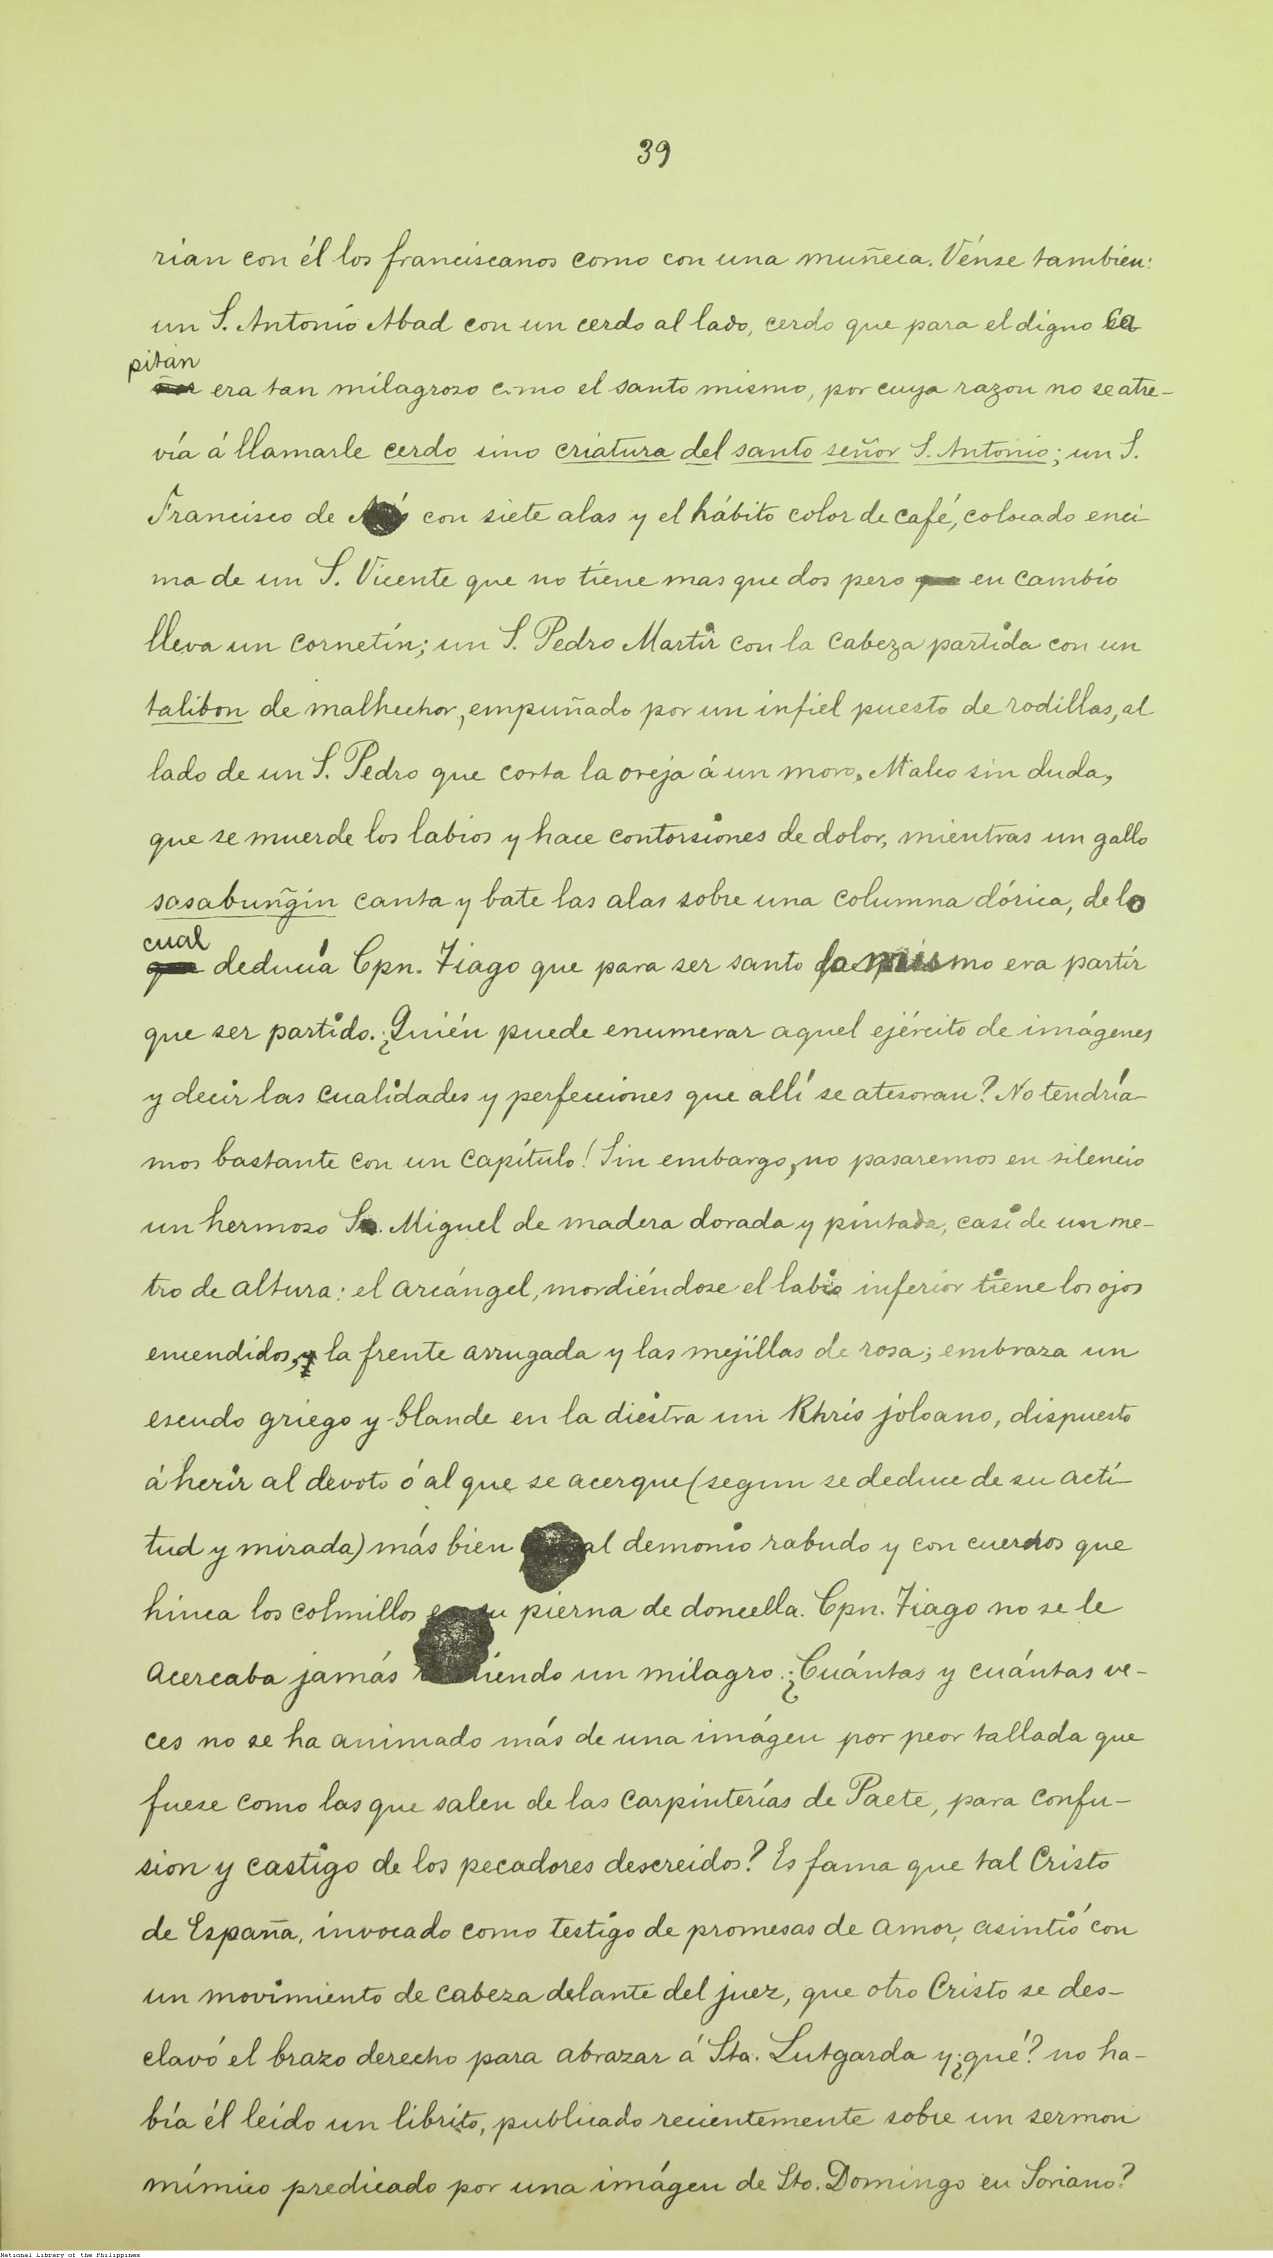 39
rían con él los franciscanos como con una muñeca. Vénse tambien:
un S. Antonio Abad con un cerdo al lado, cerdo que para el digno Ca
pitán
era tan milagroso como el santo mismo, por cuya razon no se atre-
vía á llamarle cerdo sino criatura del santo señor S. Antonio; un S.
Francisco de con siete alas y el hábito color de café, colocado enci-
ma de un S. Vicente que no tiene mas que dos pero en cambio
lleva un cornetín; un S. Pedro Martir con la cabeza partida con un
talibon de malhechor, empuñado por un infiel puesto de rodillas, al
lado de un S. Pedro que corta la oreja á un moro, Malco sin duda,
que se muerde los labios y hace contorsiones de dolor, mientras un gallo
sasabung̃in canta y bate las alas sobre una columna dórica, de lo
cual
deducía Cpn. Tiago que para ser santo lo mismo era partir
que ser partido. ¿Quién puede enumerar aquel ejército de imágenes
y decir las cualidades y perfecciones que allí se atesoran? No tendría-
mos bastante con un capítulo! Sin embargo, no pasaremos en silencio
un hermoso S. Miguel de madera dorada y pintada, casi de un me-
tro de altura: el arcángel, mordiéndose el labio inferior tiene los ojos
encendidos, la frente arrugada y las mejillas de rosa; embraza un
escudo griego y blande en la diestra un Khris joloano, dispuesto
á herir al devoto ó al que se acerque (segun se deduce de su acti-
tud y mirada) más bien al demonio rabudo y con cuernos que
hinca los colmillos en su pierna de doncella. Cpn. Tiago no se le
acercaba jamás un milagro. ¿Cuántas y cuántas ve-
ces no se ha animado más de una imágen por peor tallada que
fuese como las que salen de las carpinterías de Paete, para confu-
sion y castigo de los pecadores descreidos? Es fama que tal Cristo
de España, invocado como testigo de promesas de amor, asintió con
un movimiento de cabeza delante del juez, que otro Cristo se des-
clavó el brazo derecho para abrazar á Sta. Lutgarda y ¿qué? no ha-
bía él leído un librito, publicado recientemente sobre un sermon
mímico predicado por una imágen de Sto. Domingo en Soriano?
National Library of the Philippines